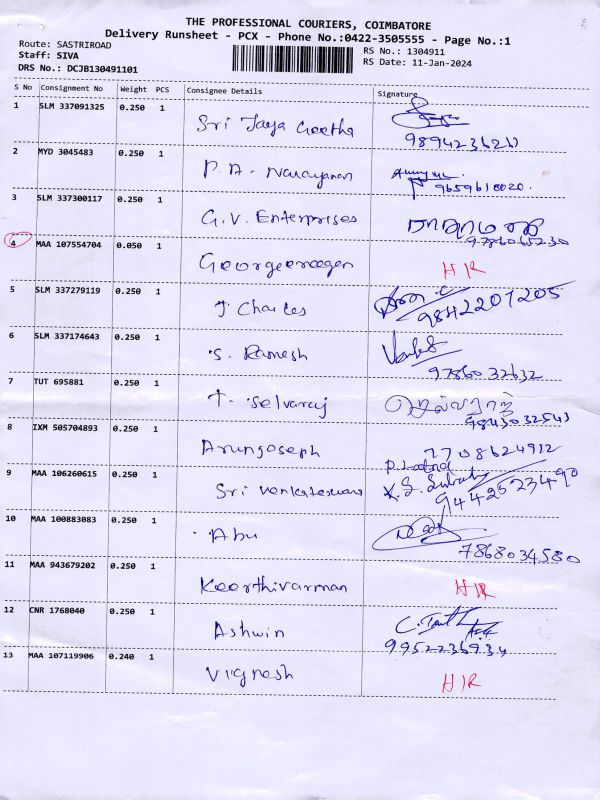 THE PROFESSIONAL COURIERS, COIMBATORE
Delivery Runsheet - PCX - Phone No.:0422-3505555 - Page No.:1
Route: SASTRIROAD RS No.: 1304911
Staff: SIVA RS Date: 11-Jan-2024
DRS No.: DCJB130491101
S No Consignment No Weight PCS Consignee Details Signature
1 SLM 337091325 0.250 1 Sri Jaya Geetha
9894236261
2 MYD 3045483 0.250 1 P. A. Narayanan
9659618020.
3 SLM 337300117 0.250 1 G.V. Enterprises
9786065230
4 MAA 107554704 0.050 1
HIR
5 SLM 337279119 0.250 1 J. Charles
9842201205
6 SLM 337174643 0.250 1 S. Ramesh
9786032632
7 TUT 695881 0.250 1 T. Selvaraj செல்வராஜ்
9843032543
8 IXM 505704893 0.250 1 Arunjoseph 7708624912
9 MAA 106260615 0.250 1 Sri Venkateswara
9442523490
10 MAA 100883083 0.250 1 Abu
7868034580
11 MAA 943679202 0.250 1 Keerthivarman HIR
12 CNR 1768040 0.250 1 Ashwin
9952236934
13 MAA 107119906 0.240 1 Vignesh HIR